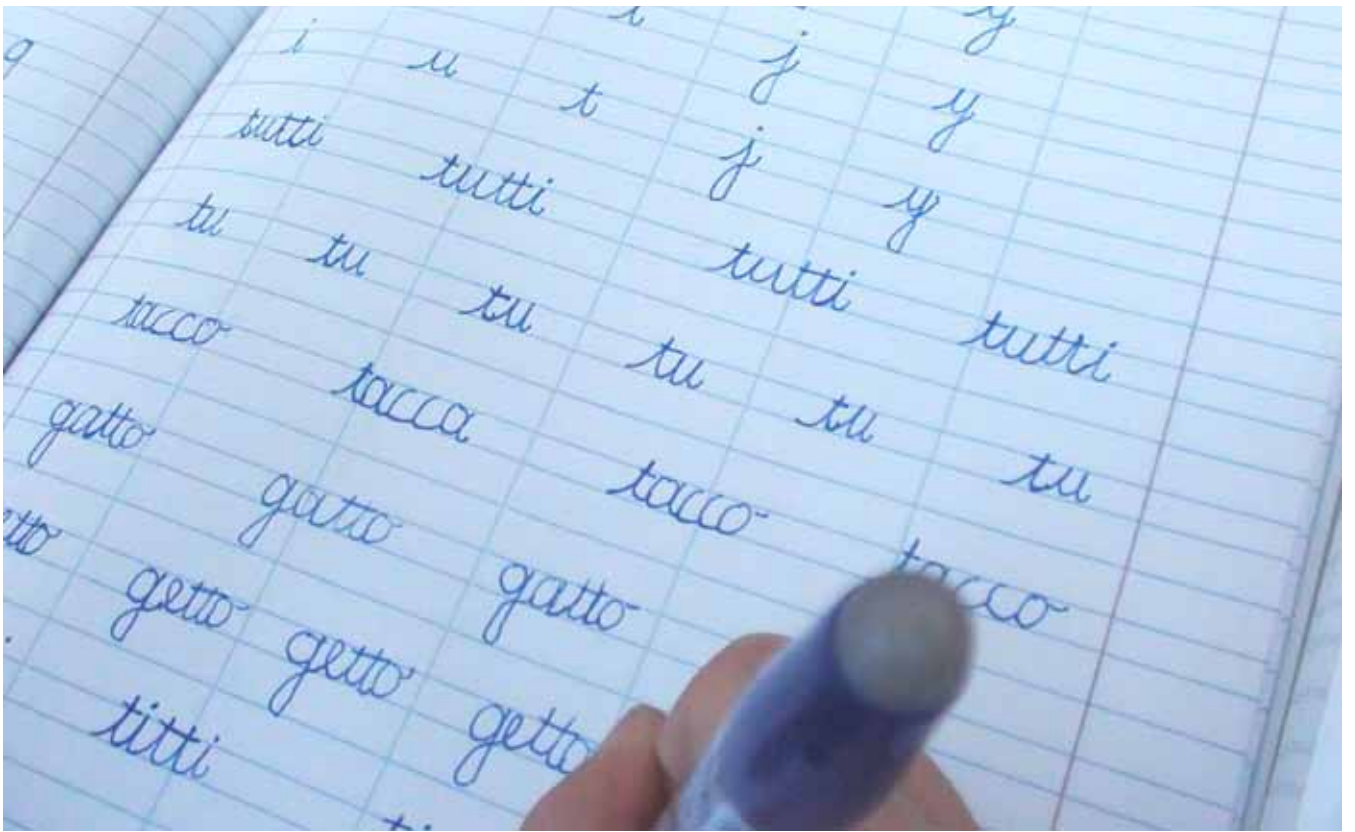 y
j y
i u t j y
tutti tutti tutti tutti
tu tu tu tu tu tu
tacco tacca tacco tacco
gatto gatto gatto
getto getto getto
titti